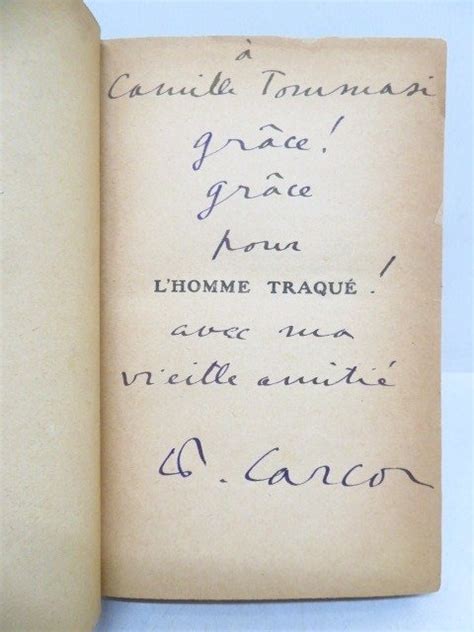 à
Camille Tommasi
grâce!
grâce
pour
L'HOMME TRAQUÉ!
avec ma
vieille amitié
F. Carco